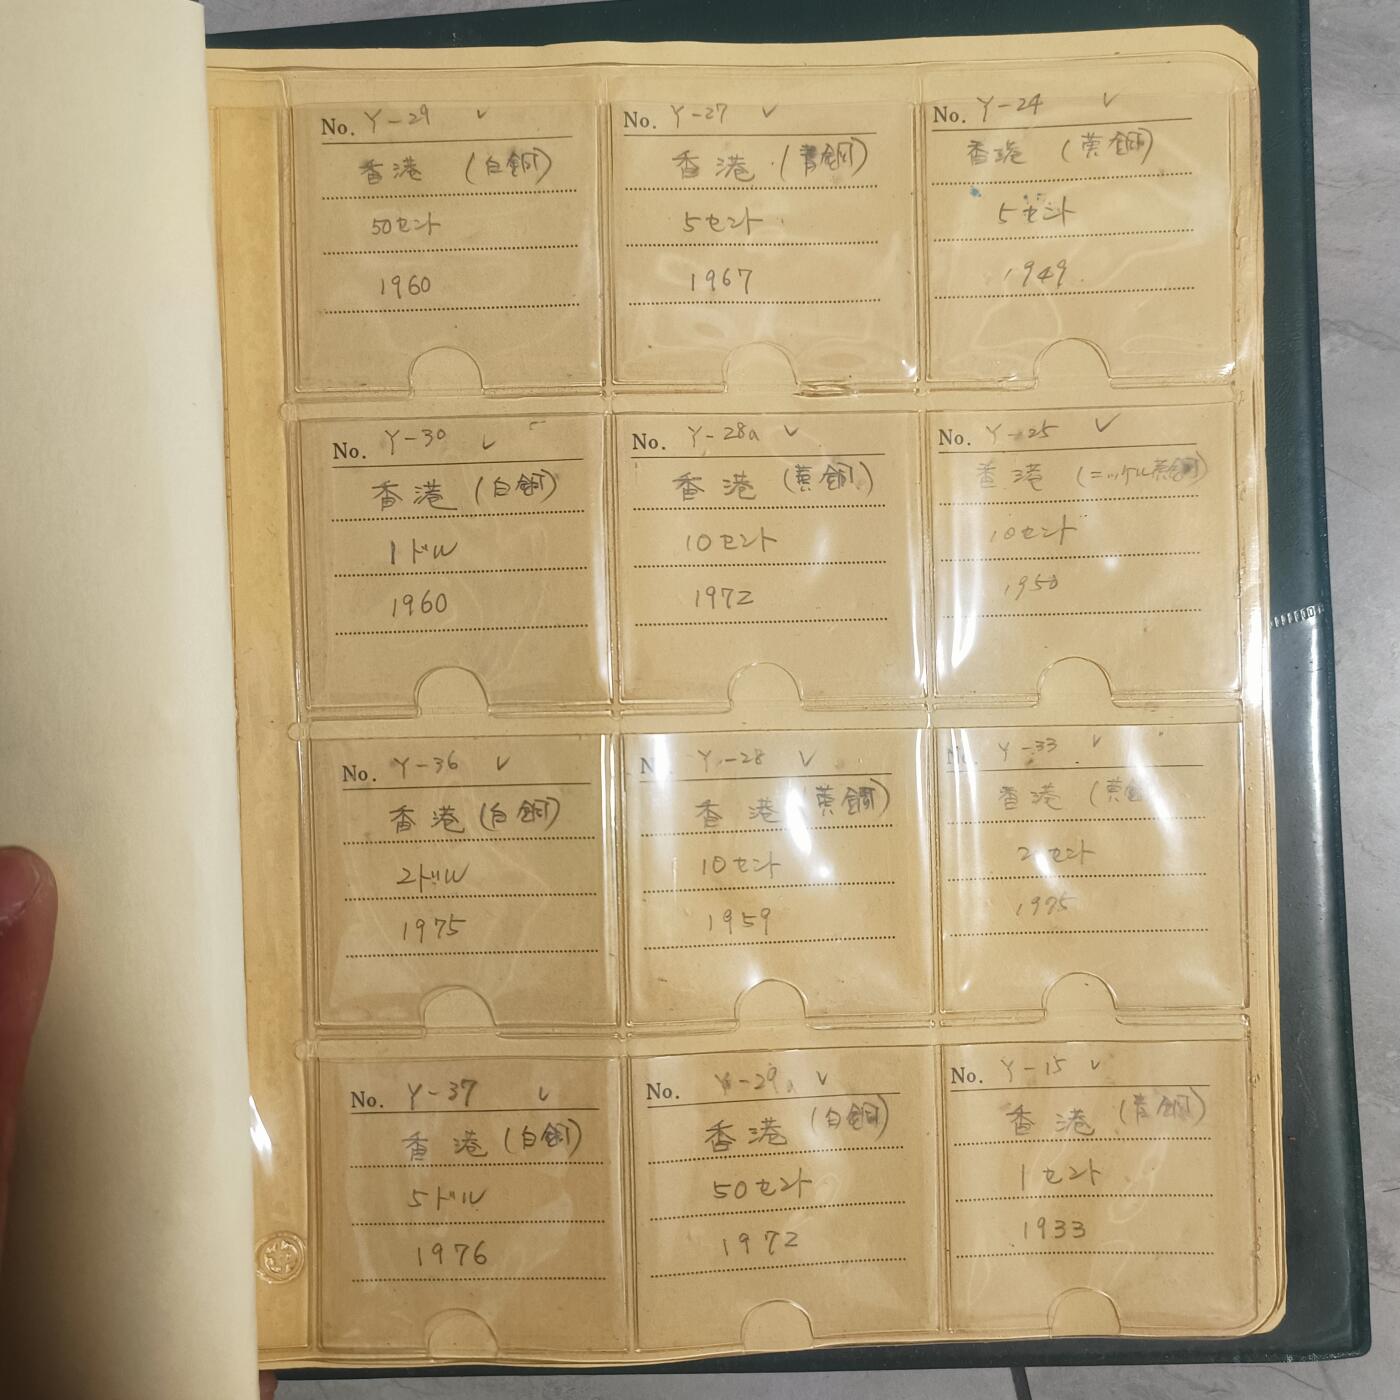 No. Y-29 ✓
香港 (白銅)
50セント
1960
No. Y-27 ✓
香港 (青銅)
5セント
1967
No. Y-24 ✓
香港 (黄銅)
5セント
1949
No. Y-30 ✓
香港 (白銅)
1ドル
1960
No. Y-28a ✓
香港 (黄銅)
10セント
1972
No. Y-25 ✓
香港 (ニッケル黄銅)
10セント
1950
No. Y-36 ✓
香港 (白銅)
2ドル
1975
No. Y-28 ✓
香港 (黄銅)
10セント
1959
No. Y-33 ✓
香港 (黄銅
2セント
1975
No. Y-37 ✓
香港 (白銅)
5ドル
1976
No. Y-29a ✓
香港 (白銅)
50セント
1972
No. Y-15 ✓
香港 (青銅)
1セント
1933